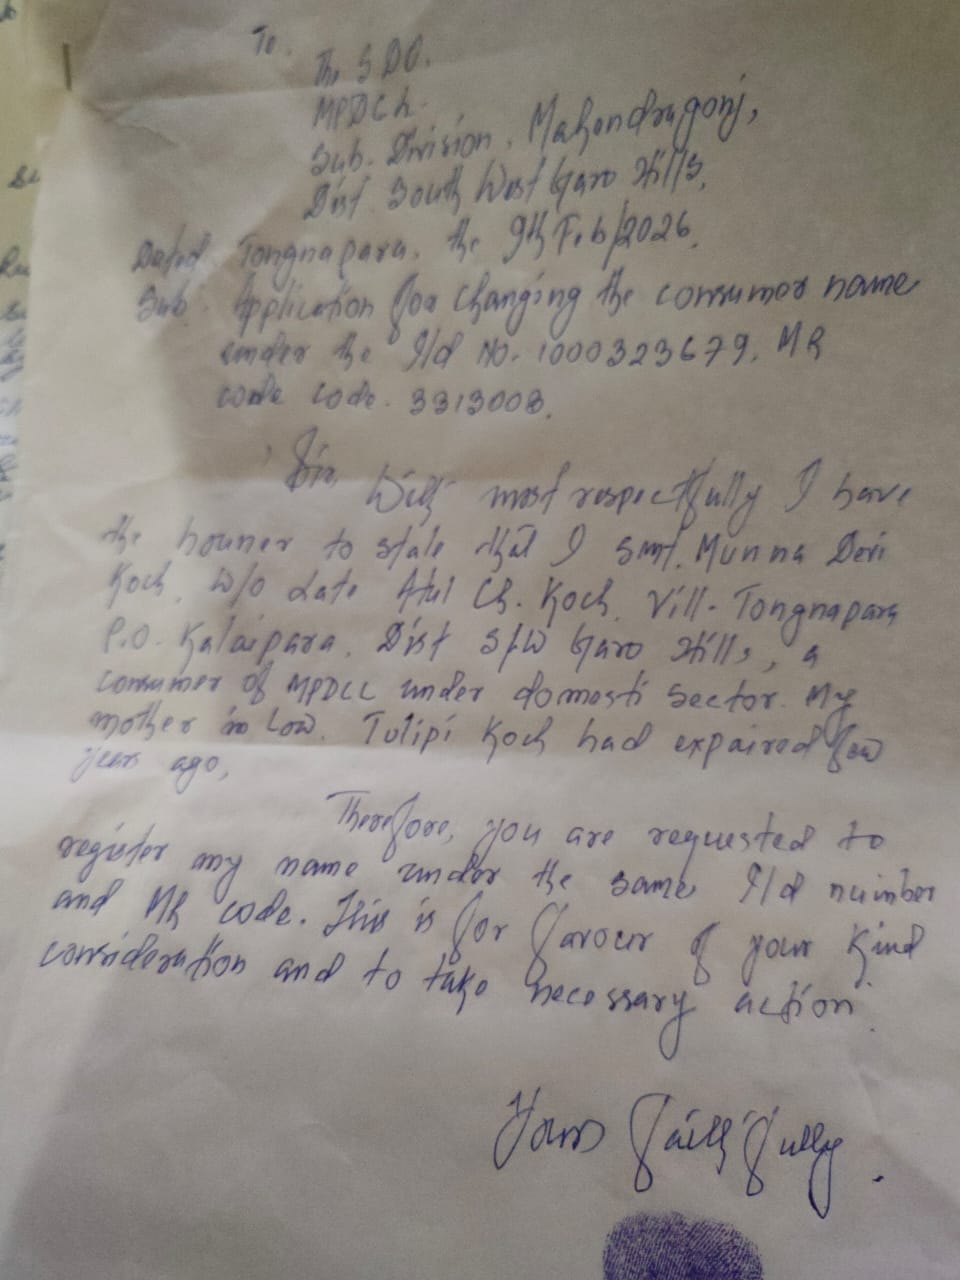 To.
The SDO.
MPDCL.
Sub. Division, Mahendragonj,
Dist. South West Garo Hills.
Dated Tongnapara. the 9th Feb/2026.
Sub. Application for changing the consumer name
under the I/d No. 1000323679. MR
code code. 3313008.
Sir,
With most respectfully I have
the houner to state that I smt. Munna Devi
Koch. W/o Late Atul Ch. Koch. Vill- Tongnapara
P.O. Kalaipara. Dist S/W Garo Hills, a
consumer of MPDCL under domesti sector. My
mother in low. Tulipi Koch had expaired few
years ago,
Therefore, you are requested to
register my name under the same I/d number
and MR code. This is for favour of your kind
consideration and to take necessary action.
Yours faithfully.